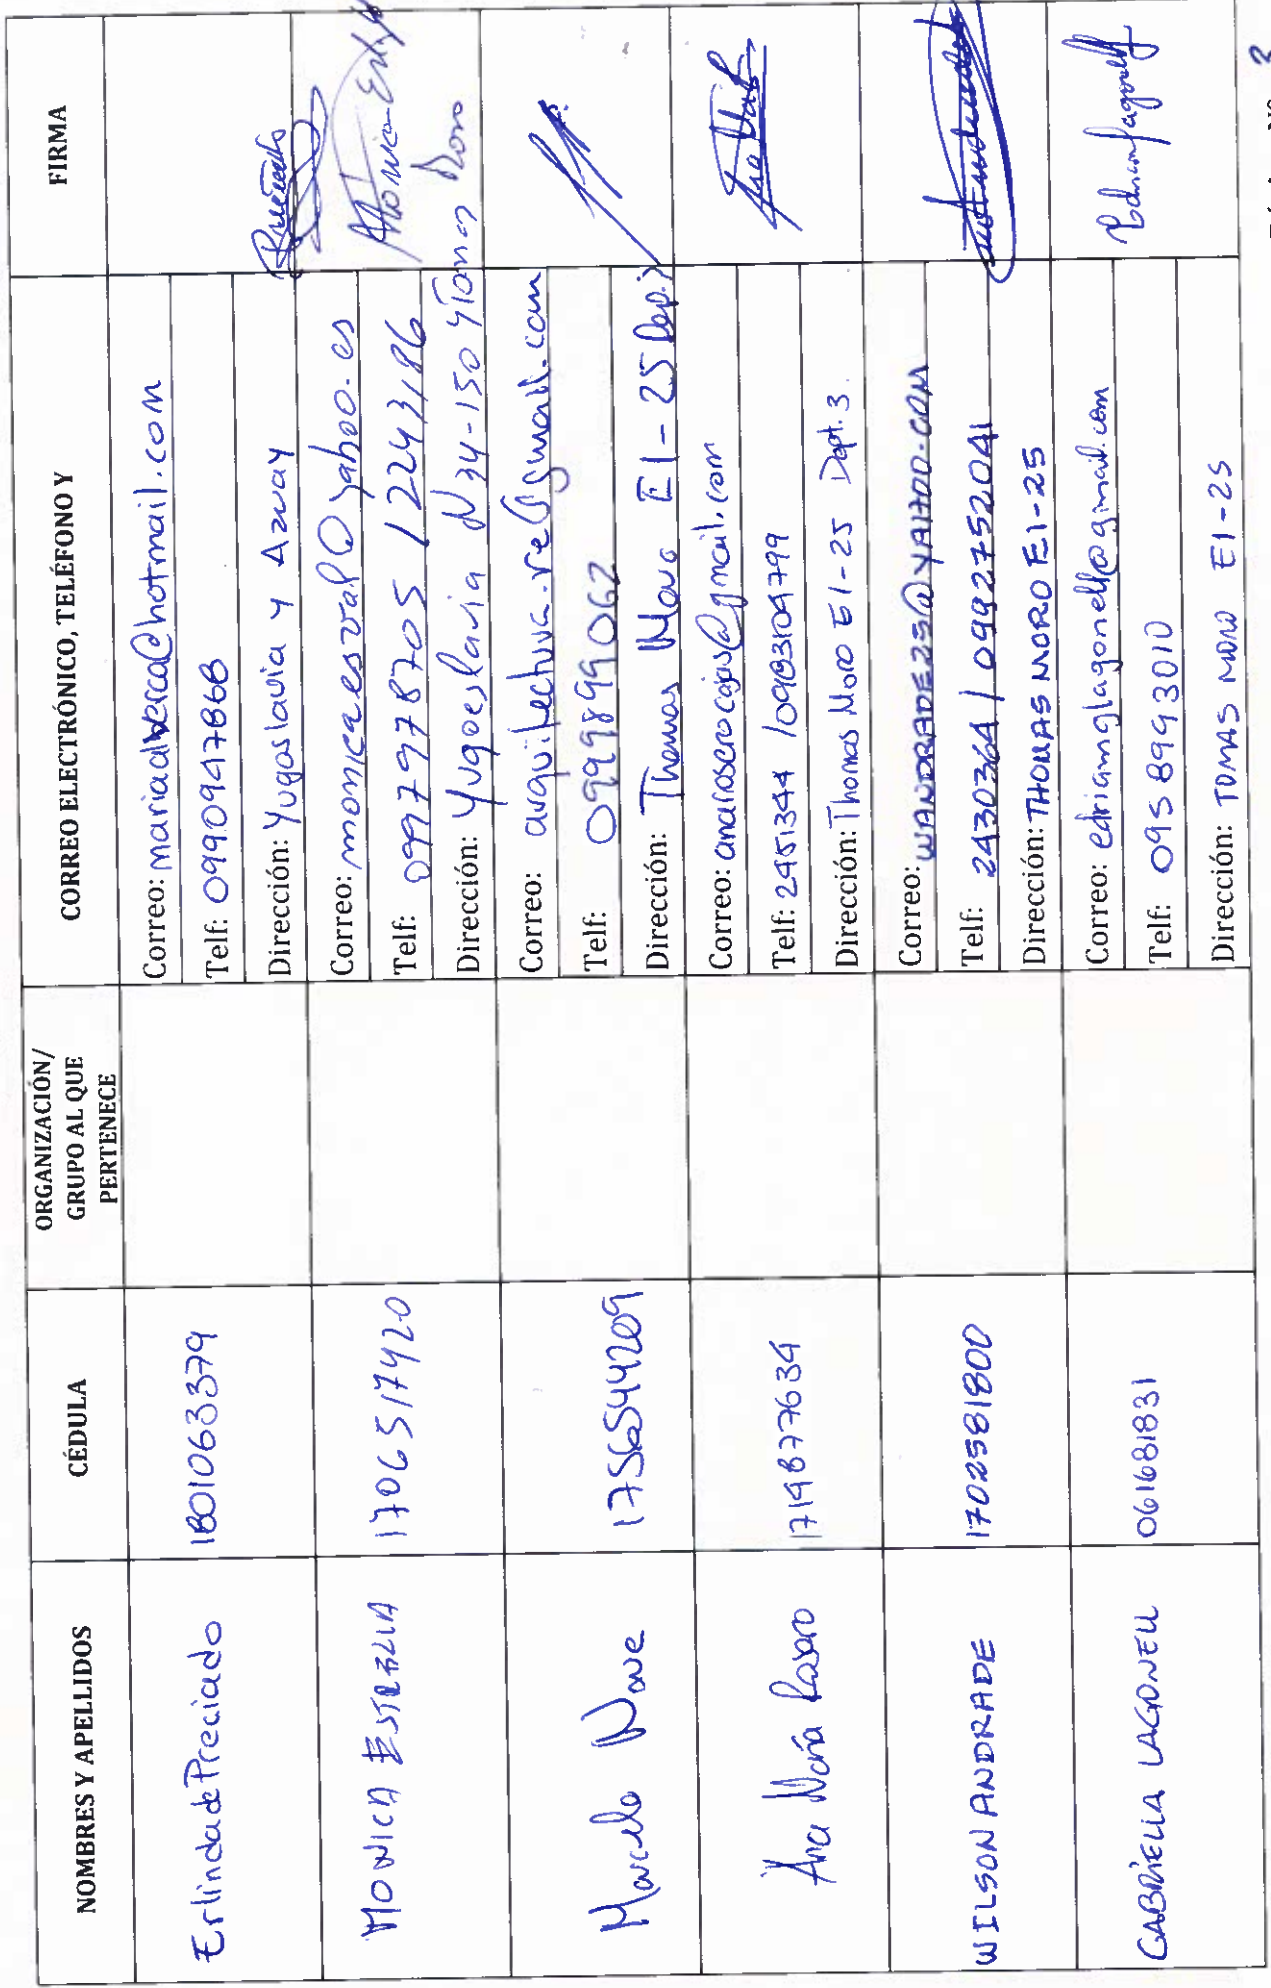 NOMBRES Y APELLIDOS
CÉDULA
ORGANIZACIÓN/
GRUPO AL QUE
PERTENECE
CORREO ELECTRÓNICO, TELÉFONO Y
FIRMA
Erlinda de Preciado
1801063379
Correo: mariaalverca@hotmail.com
Telf: 0990947868
Dirección: Yugoslavia y Azuay
MONICA ESTRELLA
1706517420
Correo: monicaestral@yahoo.es
Telf: 0997978705 / 2243186
Dirección: Yugoeslavia N34-150 y Tomas Moro
Marcelo
1756544209
Correo: arquitectura.re@gmail.com
Telf: 0999899062
Dirección: Thomas Moro E1-25 Dep.
Ana María Rosero
1719877634
Correo: anaroserocajas@gmail.com
Telf: 2451344 / 0983104799
Dirección: Thomas Moro E1-25 Dept. 3.
WILSON ANDRADE
1702581800
Correo: WANDRADE25@YAHOO.COM
Telf: 2430364 / 0992752041
Dirección: THOMAS MORO E1-25
GABRIELLA LAGONELL
061681831
Correo: edriamglagonell@gmail.com
Telf: 0958993010
Dirección: TOMAS MORO E1-25